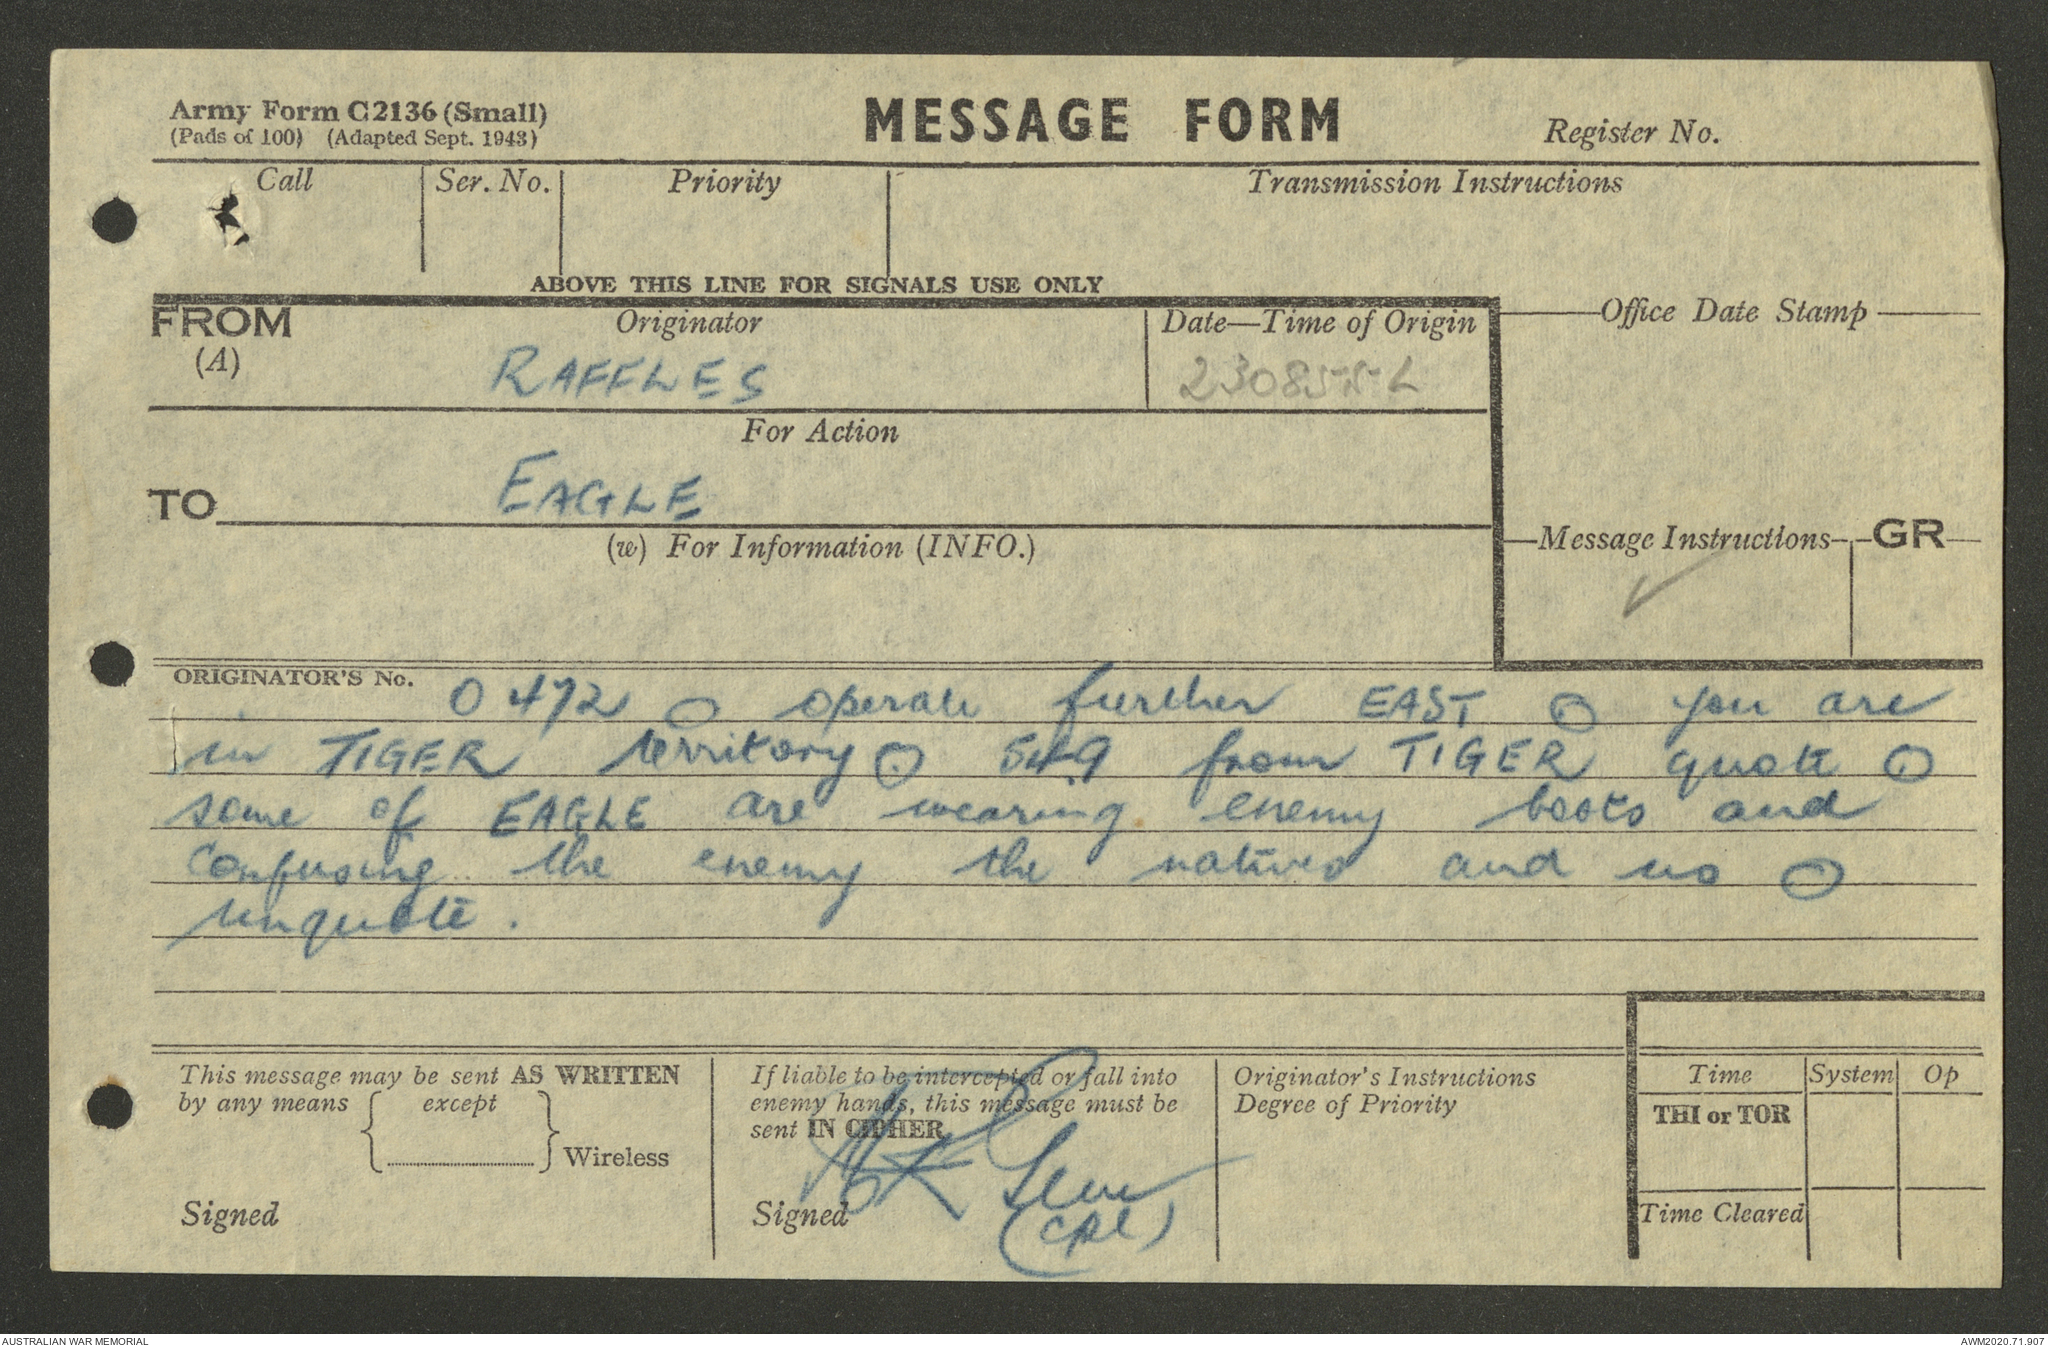 Army Form C2136 (Small)
(Pads of 100) (Adapted Sept. 1943)
MESSAGE FORM
Register No.
Call
Ser. No.
Priority
Transmission Instructions
ABOVE THIS LINE FOR SIGNALS USE ONLY
FROM
(A)
Originator
RAFFLES
Date—Time of Origin
230855L
Office Date Stamp
For Action
TO
EAGLE
(w) For Information (INFO.)
Message Instructions
GR
ORIGINATOR'S No.
0472 O operate further EAST O you are
in TIGER territory O 549 from TIGER quote O
some of EAGLE are wearing enemy boots and
confusing the enemy the natives and us O
unquote.
This message may be sent AS WRITTEN
by any means { except }
Wireless
Signed
If liable to be intercepted or fall into
enemy hands, this message must be
sent IN CIPHER
Signed
(CPL)
Originator's Instructions
Degree of Priority
Time
System
Op
THI or TOR
Time Cleared
AUSTRALIAN WAR MEMORIAL
AWM2020.71.907